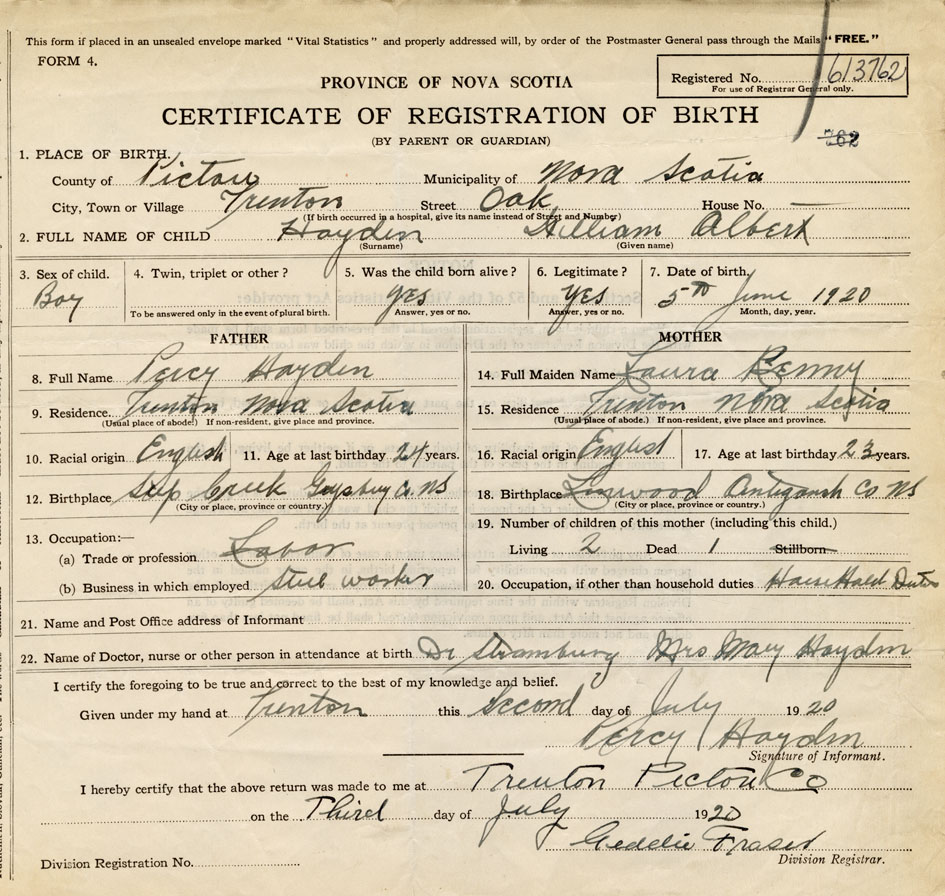 This form if placed in an unsealed envelope marked "Vital Statistics" and properly addressed will, by order of the Postmaster General pass through the Mails "FREE."
FORM 4.
Registered No. 613762
For use of Registrar General only.
PROVINCE OF NOVA SCOTIA
CERTIFICATE OF REGISTRATION OF BIRTH
(BY PARENT OR GUARDIAN)
762
1. PLACE OF BIRTH.
County of Pictou Municipality of Nova Scotia
City, Town or Village Trenton Street Oak House No.
(If birth occurred in a hospital, give its name instead of Street and Number)
2. FULL NAME OF CHILD Hayden William Albert
(Surname) (Given name)
3. Sex of child. 4. Twin, triplet or other? 5. Was the child born alive? 6. Legitimate? 7. Date of birth.
Boy yes Yes 5th June 1920
To be answered only in the event of plural birth. Answer, yes or no. Answer, yes or no. Month, day, year.
FATHER MOTHER
8. Full Name Percy Hayden 14. Full Maiden Name Laura Renny
9. Residence Trenton Nova Scotia 15. Residence Trenton Nova Scotia
(Usual place of abode!) If non-resident, give place and province. (Usual place of abode.) If non-resident, give place and province.
10. Racial origin English 11. Age at last birthday 24 years. 16. Racial origin English 17. Age at last birthday 23 years.
12. Birthplace Creek Co. NS 18. Birthplace Linwood Co NS
(City or place, province or country.) (City or place, province or country.)
13. Occupation:— 19. Number of children of this mother (including this child.)
(a) Trade or profession Labor Living 2 Dead 1 Stillborn
(b) Business in which employed Steel worker 20. Occupation, if other than household duties House Hold Duties
21. Name and Post Office address of Informant
22. Name of Doctor, nurse or other person in attendance at birth Dr Mrs Mary Hayden
I certify the foregoing to be true and correct to the best of my knowledge and belief.
Given under my hand at Trenton this Second day of July 1920
Percy Hayden
Signature of Informant.
I hereby certify that the above return was made to me at Trenton Pictou Co
on the Third day of July 1920
Geddie Fraser
Division Registration No. Division Registrar.